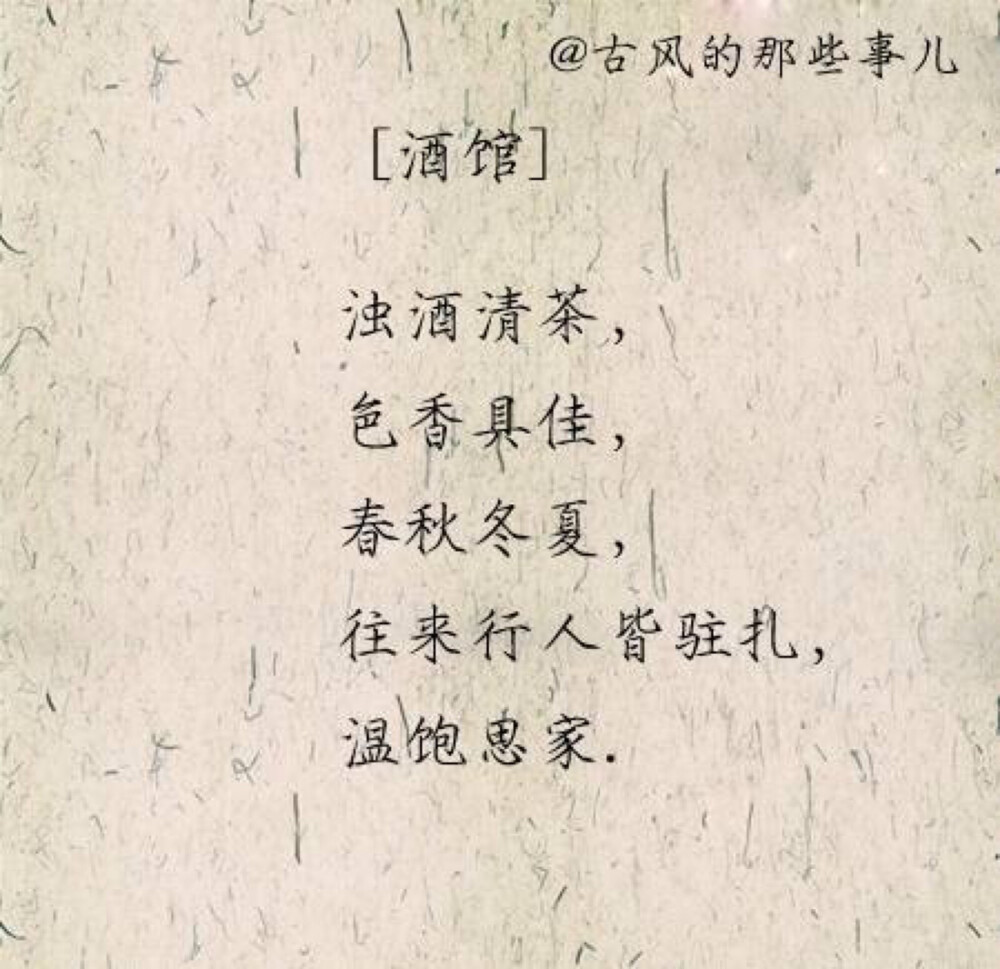 @古风的那些事儿
[酒馆]
浊酒清茶，
色香具佳，
春秋冬夏，
往来行人皆驻扎，
温饱思家.